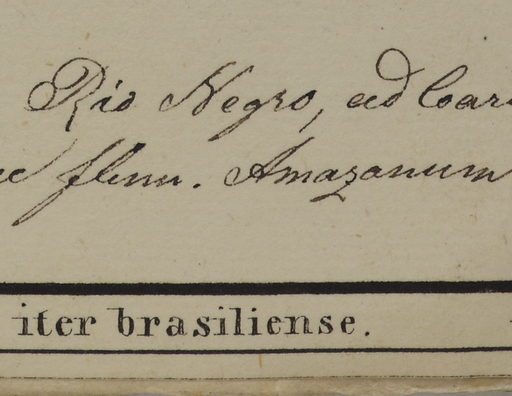 Rio Negro, ad Bar
flum. Amazonum
iter brasiliense.